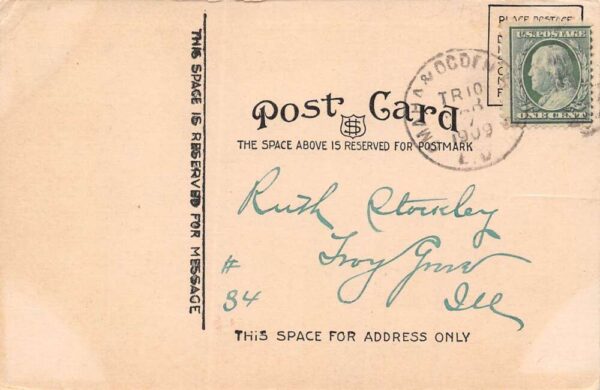 PLACE POSTAGE
U.S. POSTAGE
ONE CENT
OMAHA & OGDEN
TR 10
7
1909
Post Card
THE SPACE ABOVE IS RESERVED FOR POSTMARK
THIS SPACE IS RESERVED FOR MESSAGE
Ruth Stockley
Troy Grove
# 34
Ill
THIS SPACE FOR ADDRESS ONLY